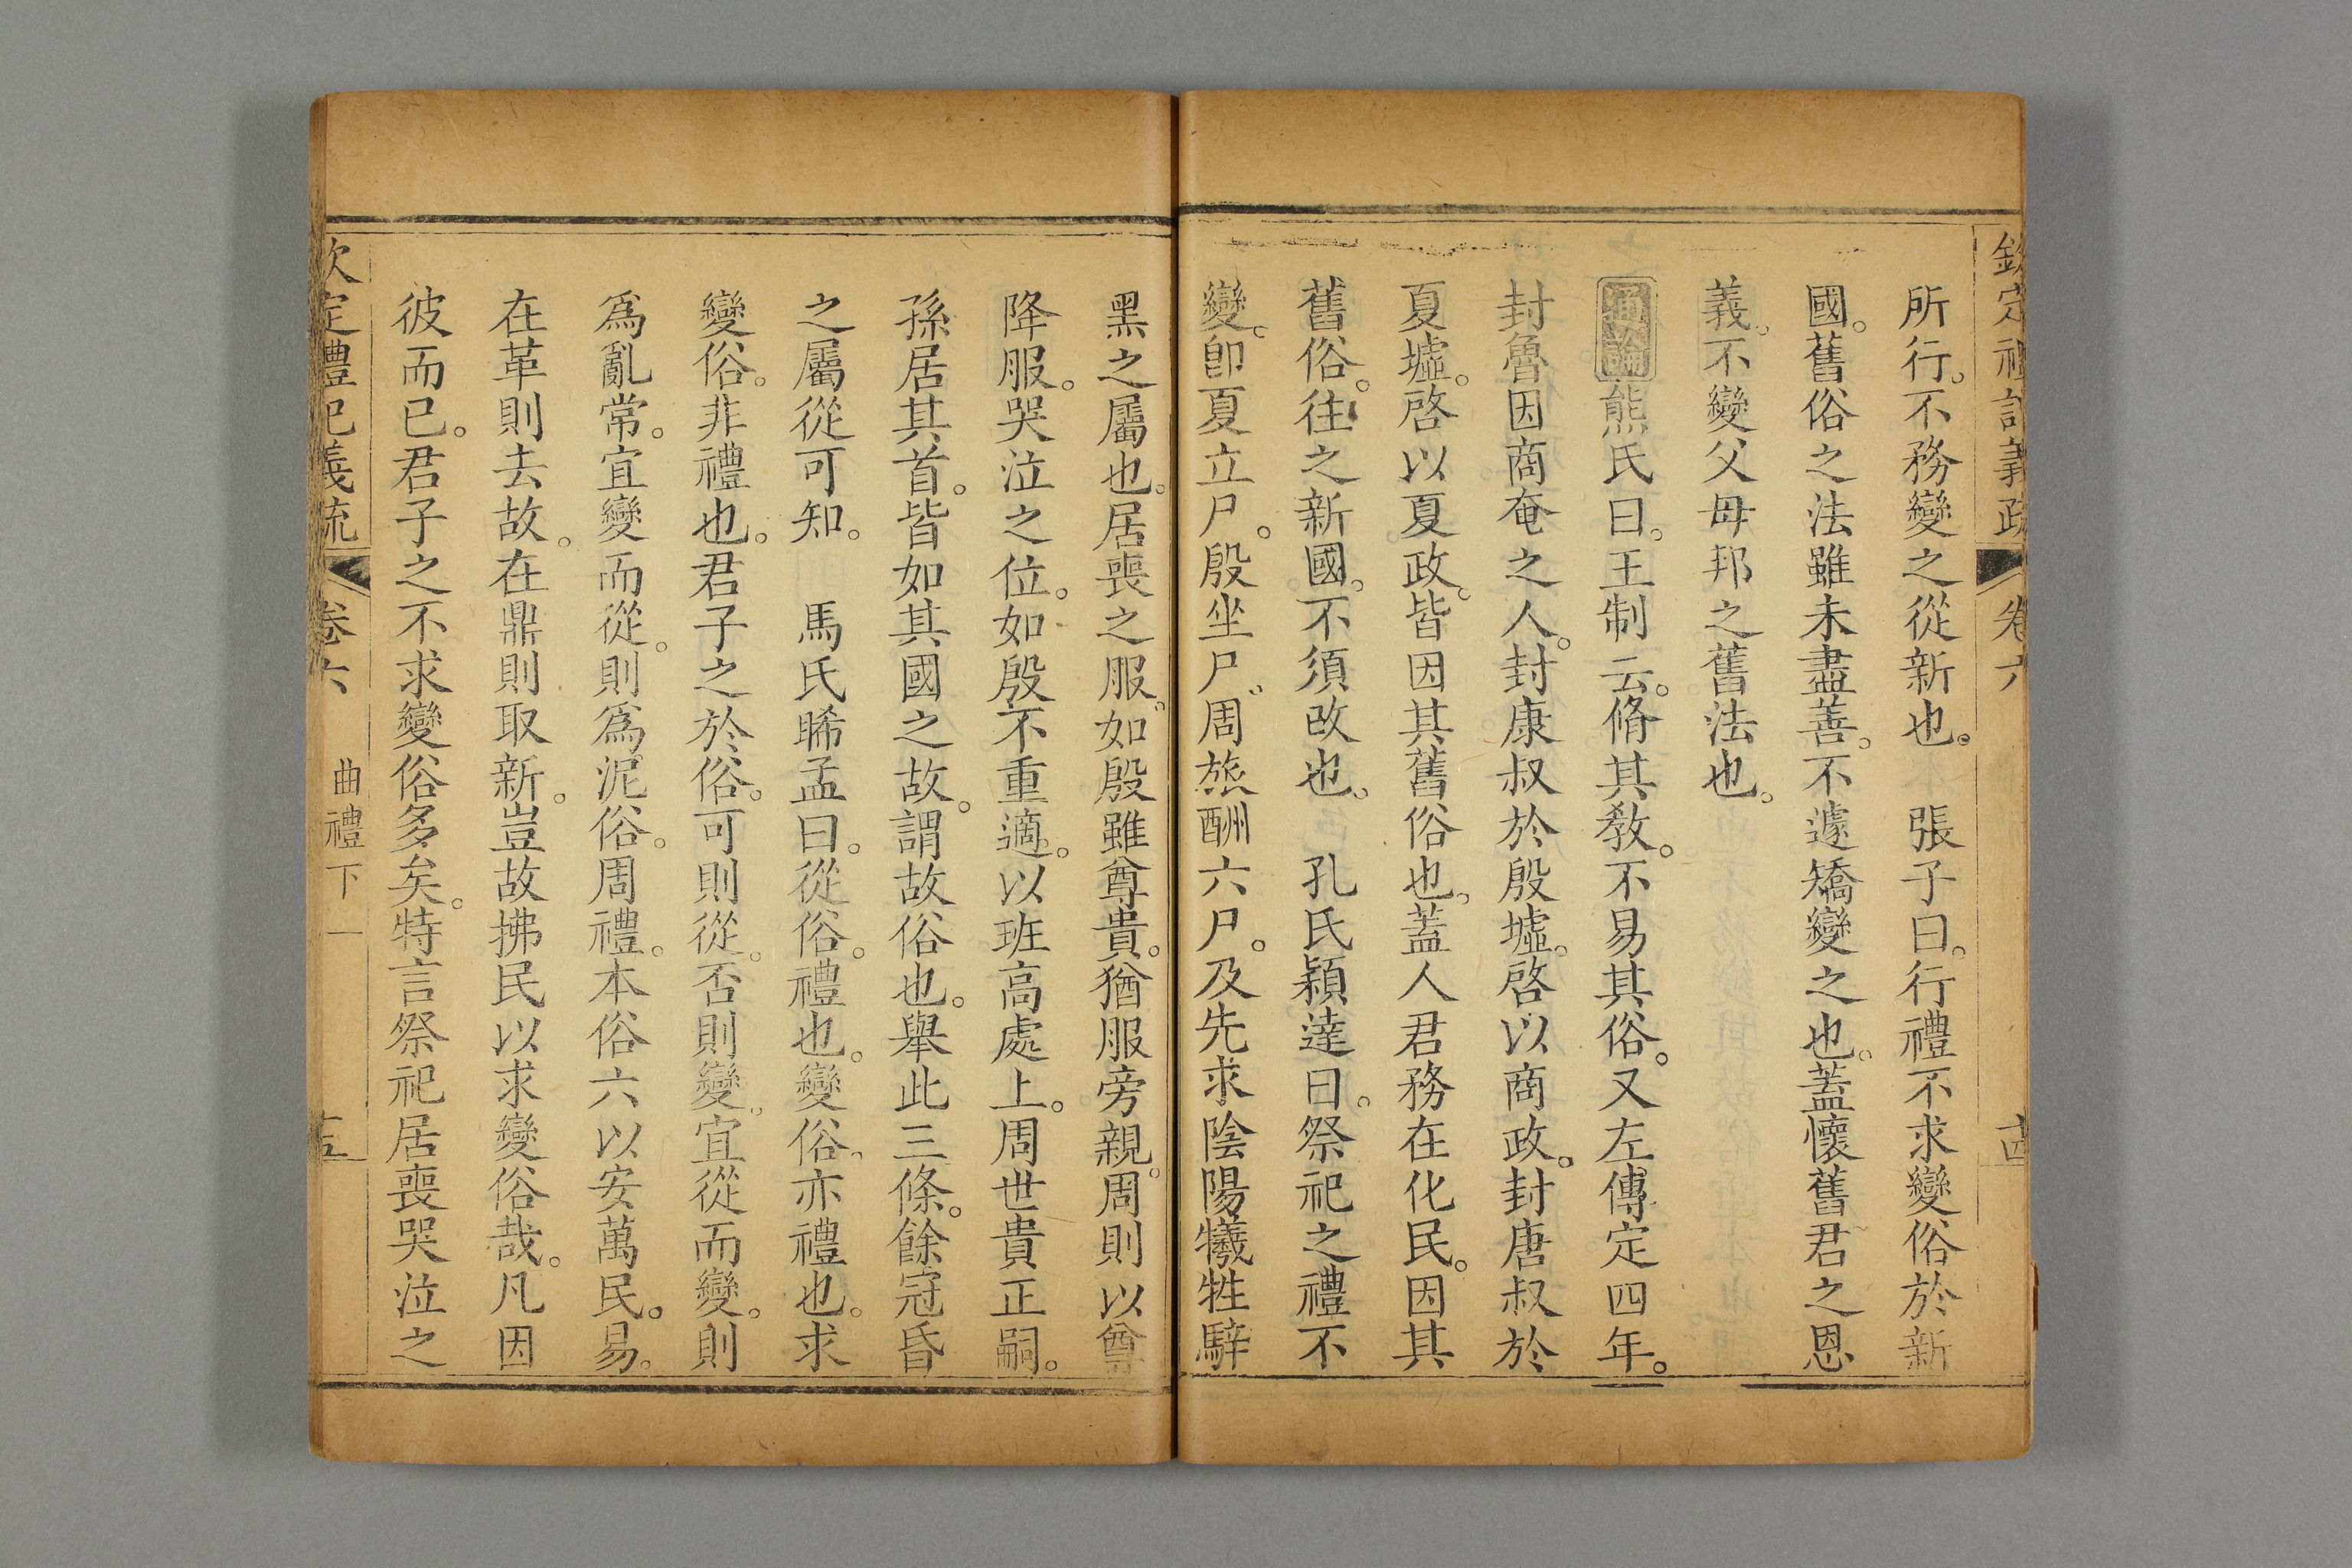 欽定禮記義疏 卷六 十四
所行。不務變之從新也。 張子曰。行禮不求變俗於新
國。舊俗之法雖未盡善。不遽矯變之也。蓋懷舊君之恩
義。不變父母邦之舊法也。
通論 熊氏曰。王制云。脩其教。不易其俗。又左傳定四年。
封魯因商奄之人。封康叔於殷墟。啓以商政。封唐叔於
夏墟。啓以夏政。皆因其舊俗也。蓋人君務在化民。因其
舊俗。往之新國。不須改也。 孔氏穎達曰。祭祀之禮不
變。卽夏立尸。殷坐尸。周旅酬六尸。及先求陰陽犧牲騂
黑之屬也。居喪之服。如殷雖尊貴。猶服旁親。周則以尊
降服。哭泣之位。如殷不重適。以班高處上。周世貴正嗣。
孫居其首。皆如其國之故。謂故俗也。舉此三條。餘冠昏
之屬從可知。 馬氏睎孟曰。從俗。禮也。變俗。亦禮也。求
變俗。非禮也。君子之於俗。可則從。否則變。宜從而變。則
爲亂常。宜變而從。則爲泥俗。周禮。本俗六以安萬民。易。
在革則去故。在鼎則取新。豈故拂民以求變俗哉。凡因
彼而已。君子之不求變俗多矣。特言祭祀居喪哭泣之
欽定禮記義疏 卷六 曲禮下一 十五